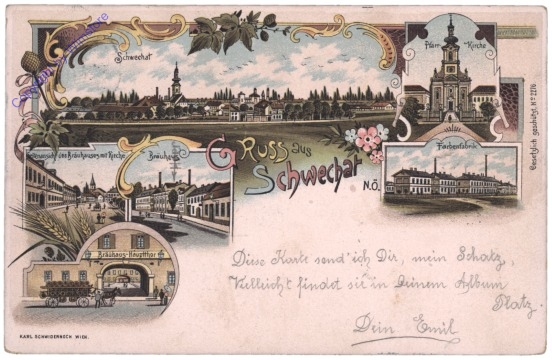 Schwechat
Pfarr-Kirche
Gesetzlich geschützt. No 2276
Bräuhaus
Gruss aus
Schwechat
N.Ö.
Farbenfabrik
Bräuhaus-Hauptthor
Diese Karte send' ich Dir, mein Schatz,
Vielleicht findet sie in Deinem Album
Platz.
Dein Emil
KARL SCHWIDERNOCH WIEN.